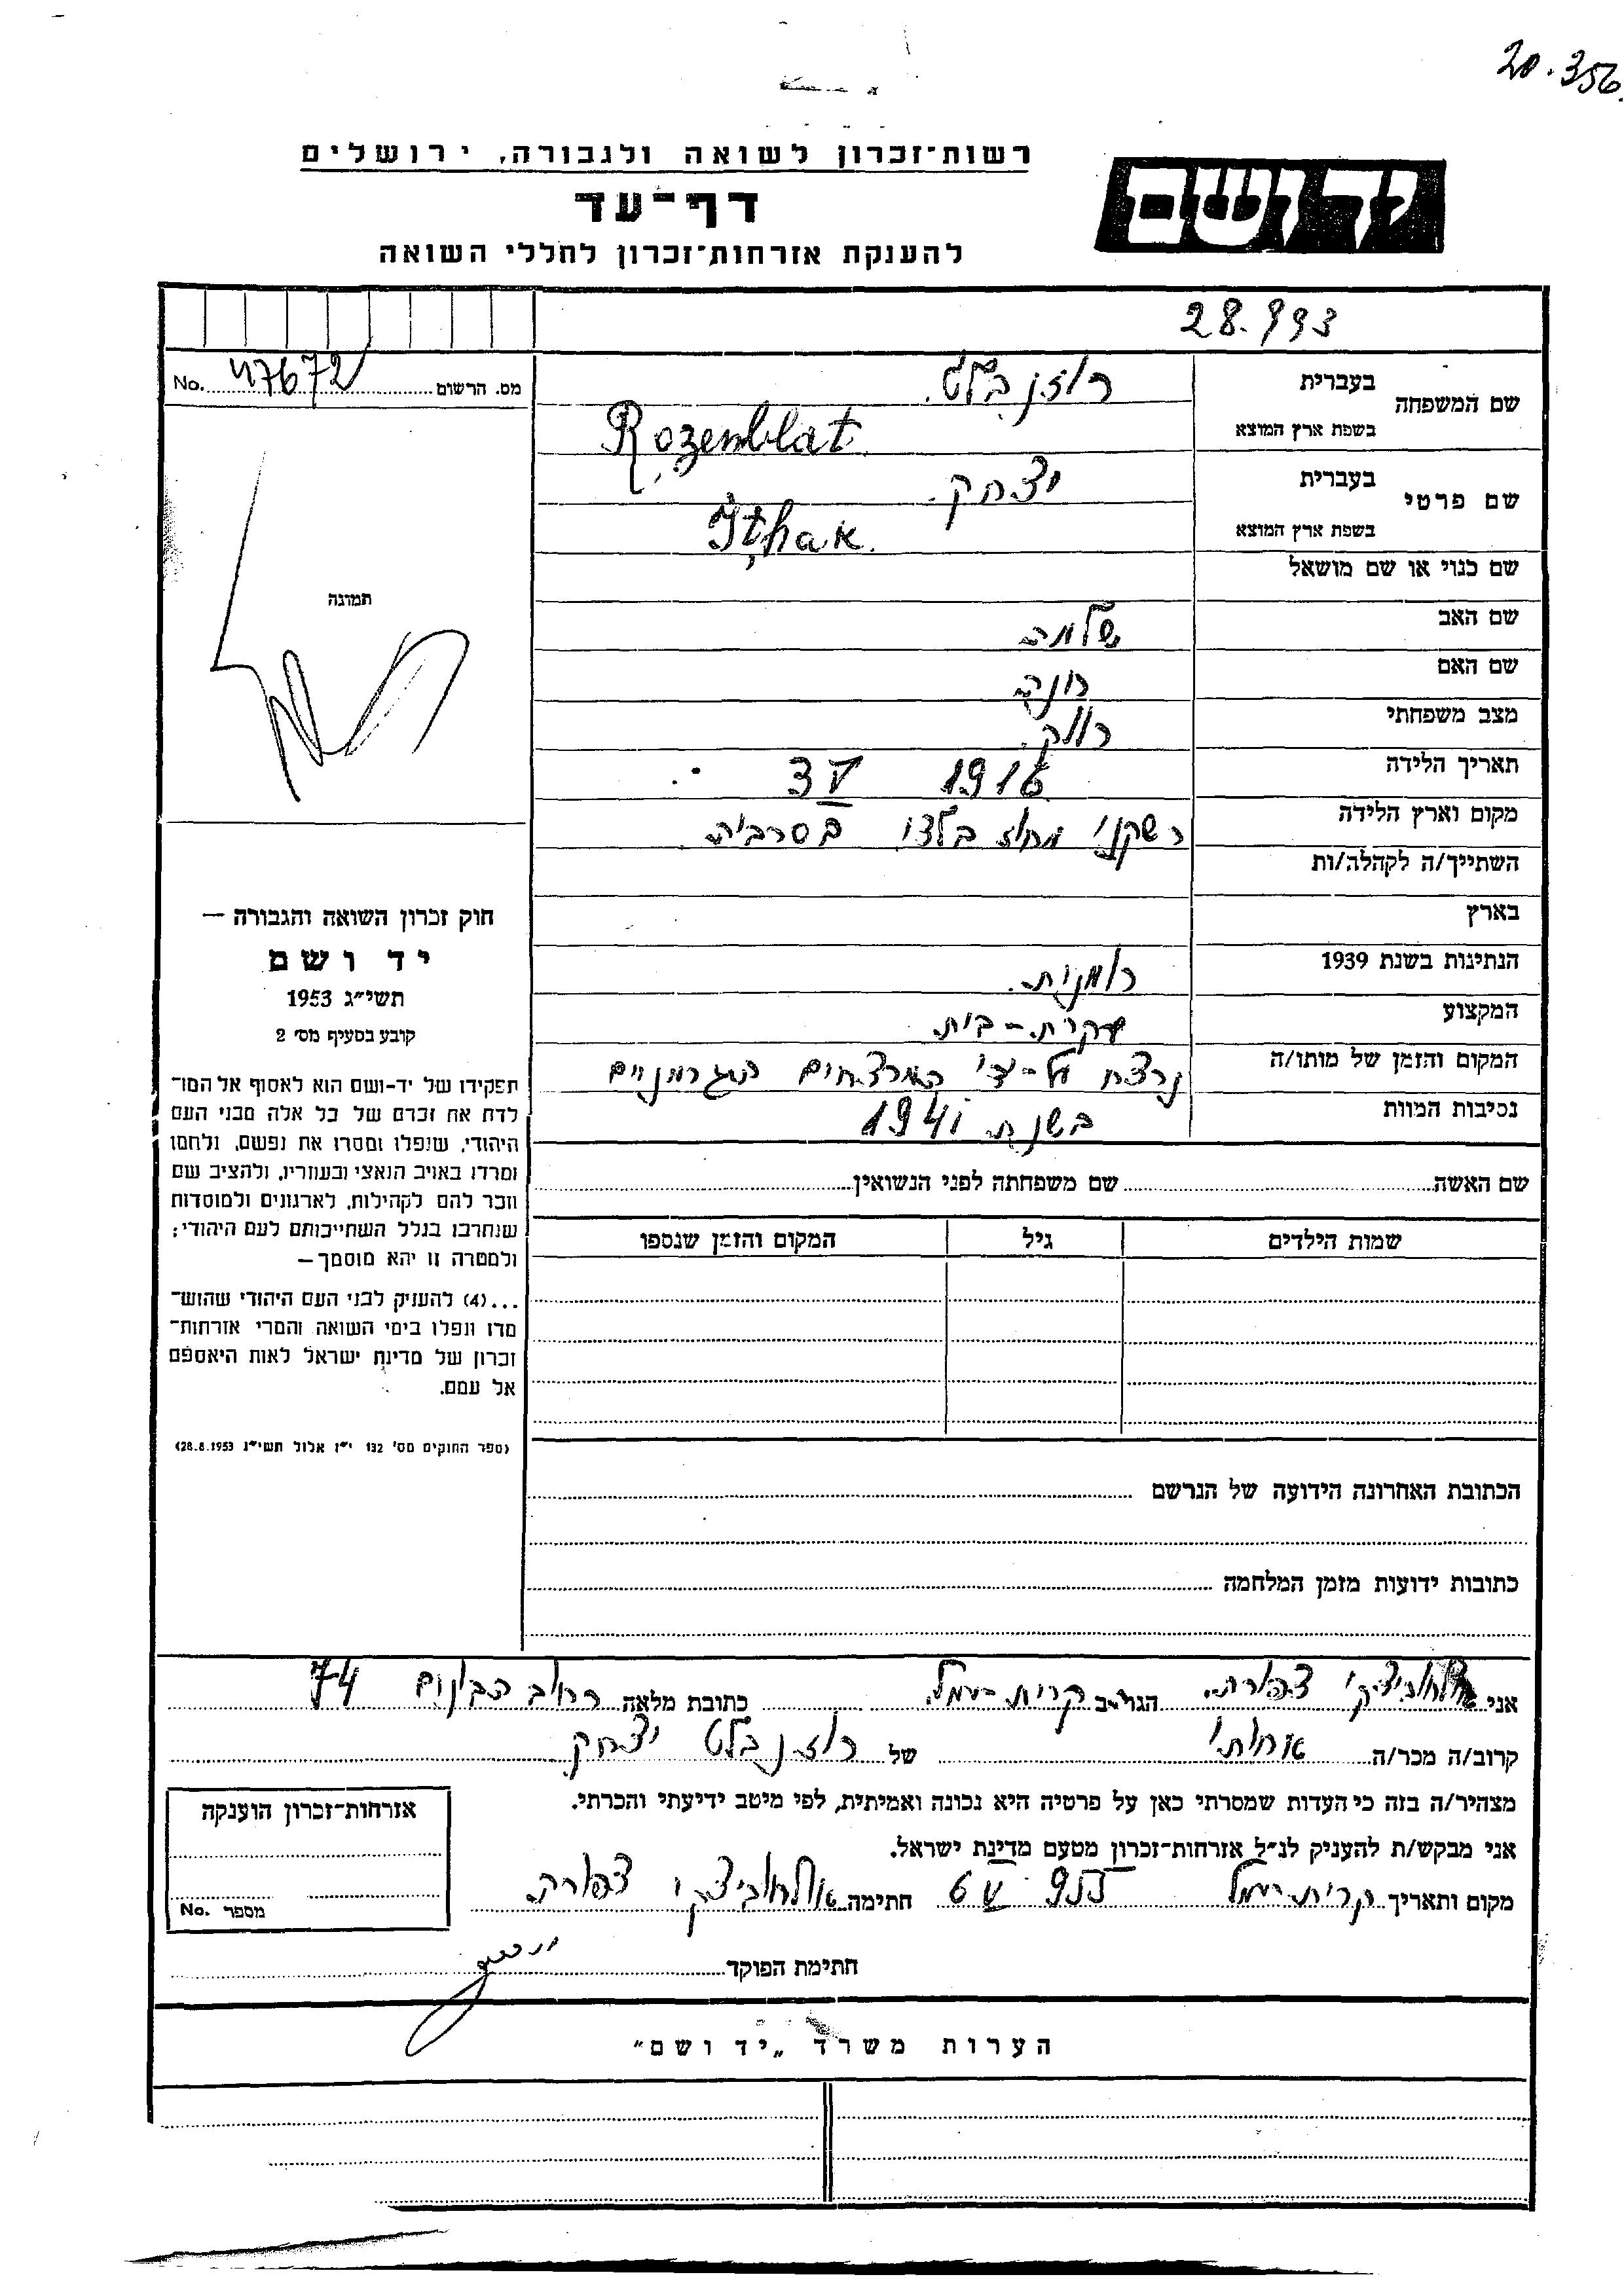 20.356.
רשות־זכרון לשואה ולגבורה, ירושלים
יד ושם
דף־עד
להענקת אזרחות־זכרון לחללי השואה
28.993
מס. הרשום No. 47672
שם המשפחה
בעברית רוזנבלט
בשפת ארץ המוצא Rozenblat
שם פרטי
בעברית יצחק
בשפת ארץ המוצא Ițhak
שם כנוי או שם מושאל
שם האב שלמה
שם האם
מצב משפחתי רווק
תאריך הלידה 1916 V 3
מקום וארץ הלידה רשקני מחוז בלצי בסרביה
השתייך/ה לקהלה/ות
בארץ
הנתינות בשנת 1939 רומנית
המקצוע עקרת-בית
המקום והזמן של מותו/ה נרצח על-ידי המרצחים הגרמניים
נסיבות המוות בשנת 1941
תמונה
חוק זכרון השואה והגבורה —
יד ושם
תשי״ג 1953
קובע בסעיף מס׳ 2
תפקידו של יד-ושם הוא לאסוף אל המו־
לדת את זכרם של כל אלה מבני העם
היהודי, שנפלו ומסרו את נפשם, נלחמו
ומרדו באויב הנאצי ובעוזריו, ולהציב שם
וזכר להם לקהילות, לארגונים ולמוסדות
שנחרבו בגלל השתייכותם לעם היהודי;
ולמטרה זו יהא מוסמך —
...(4) להעניק לבני העם היהודי שהוש־
מדו ונפלו בימי השואה והמרי אזרחות־
זכרון של מדינת ישראל לאות היאספם
אל עמם.
(ספר החוקים מס׳ 132 י״ז אלול תשי״ג 28.8.1953)
שם האשה שם משפחתה לפני הנשואין
שמות הילדים גיל המקום והזמן שנספו
הכתובת האחרונה הידועה של הנרשם
כתובות ידועות מזמן המלחמה
אני צפורה הגר/ה ב קרית כתובת מלאה רחוב הבונים 74
קרוב/ה מכר/ה אחותי של רוזנבלט יצחק
מצהיר/ה בזה כי העדות שמסרתי כאן על פרטיה היא נכונה ואמיתית, לפי מיטב ידיעתי והכרתי.
אני מבקש/ת להעניק לנ״ל אזרחות־זכרון מטעם מדינת ישראל.
מקום ותאריך קרית חתימה צפורה
אזרחות־זכרון הוענקה
מספר No.
חתימת הפוקד
הערות משרד „יד ושם״